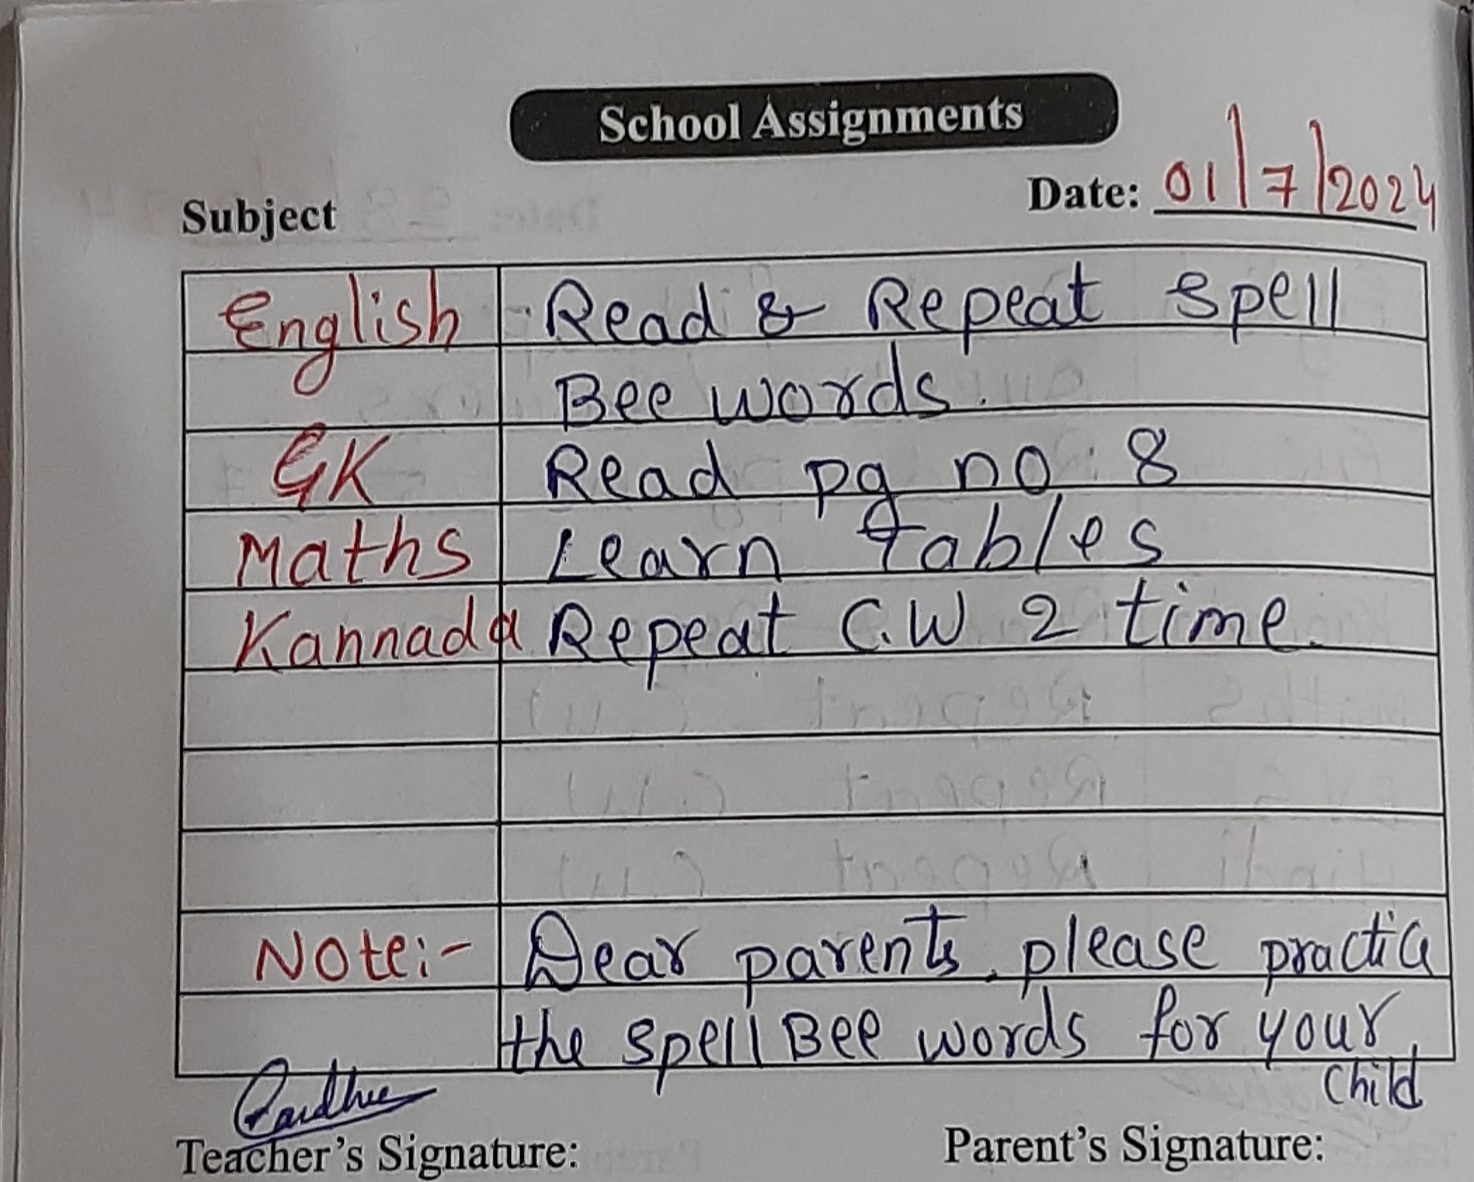 School Assignments
Subject Date: 01/7/2024
English Read & Repeat spell
Bee words.
GK Read pg no: 8
Maths Learn tables
Kannada Repeat C.W 2 time.
Note:- Dear parents, please practice
the spell Bee words for your
child
Teacher's Signature: Parent's Signature: